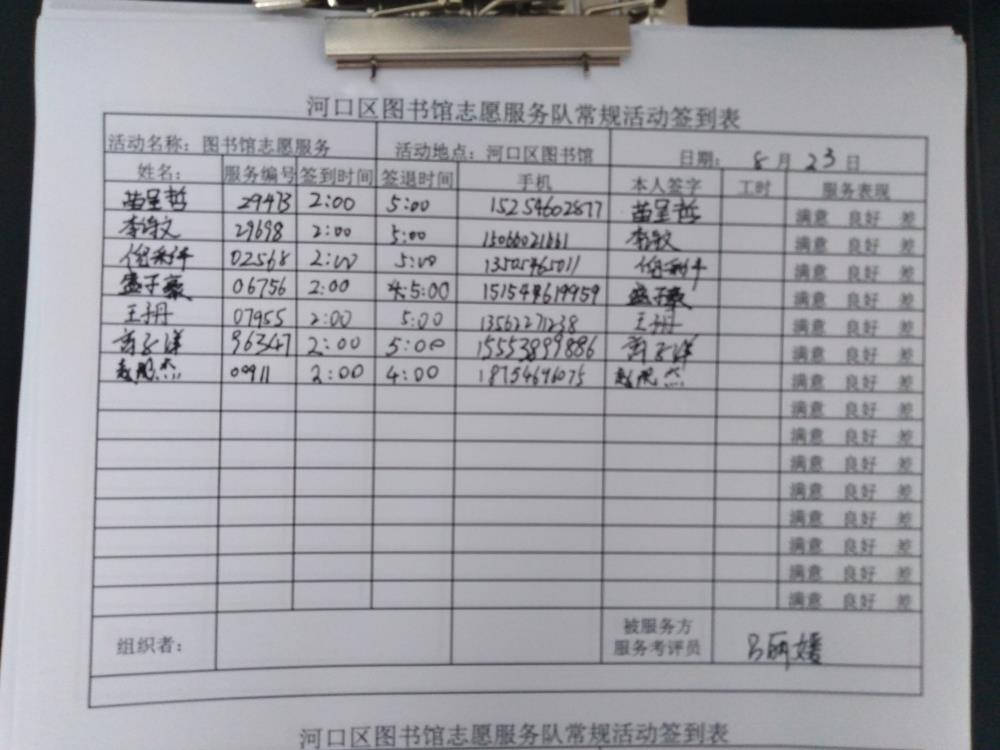 河口区图书馆志愿服务队常规活动签到表
活动名称：图书馆志愿服务 活动地点：河口区图书馆 日期： 8 月 23 日
姓名： 服务编号 签到时间 签退时间 手机 本人签字 工时 服务表现
苗呈哲 29473 2:00 5:00 15254602877 苗呈哲 满意 良好 差
29698 2:00 5:00 满意 良好 差
02568 2:00 5:00 13505465011 满意 良好 差
盛子豪 06756 2:00 5:00 盛子豪 满意 良好 差
王丹 07955 2:00 5:00 13562271238 王丹 满意 良好 差
96347 2:00 5:00 15553899886 满意 良好 差
00911 2:00 4:00 18754696075 满意 良好 差
满意 良好 差
满意 良好 差
满意 良好 差
满意 良好 差
满意 良好 差
满意 良好 差
满意 良好 差
满意 良好 差
组织者： 被服务方
服务考评员 吕丽媛
河口区图书馆志愿服务队常规活动签到表